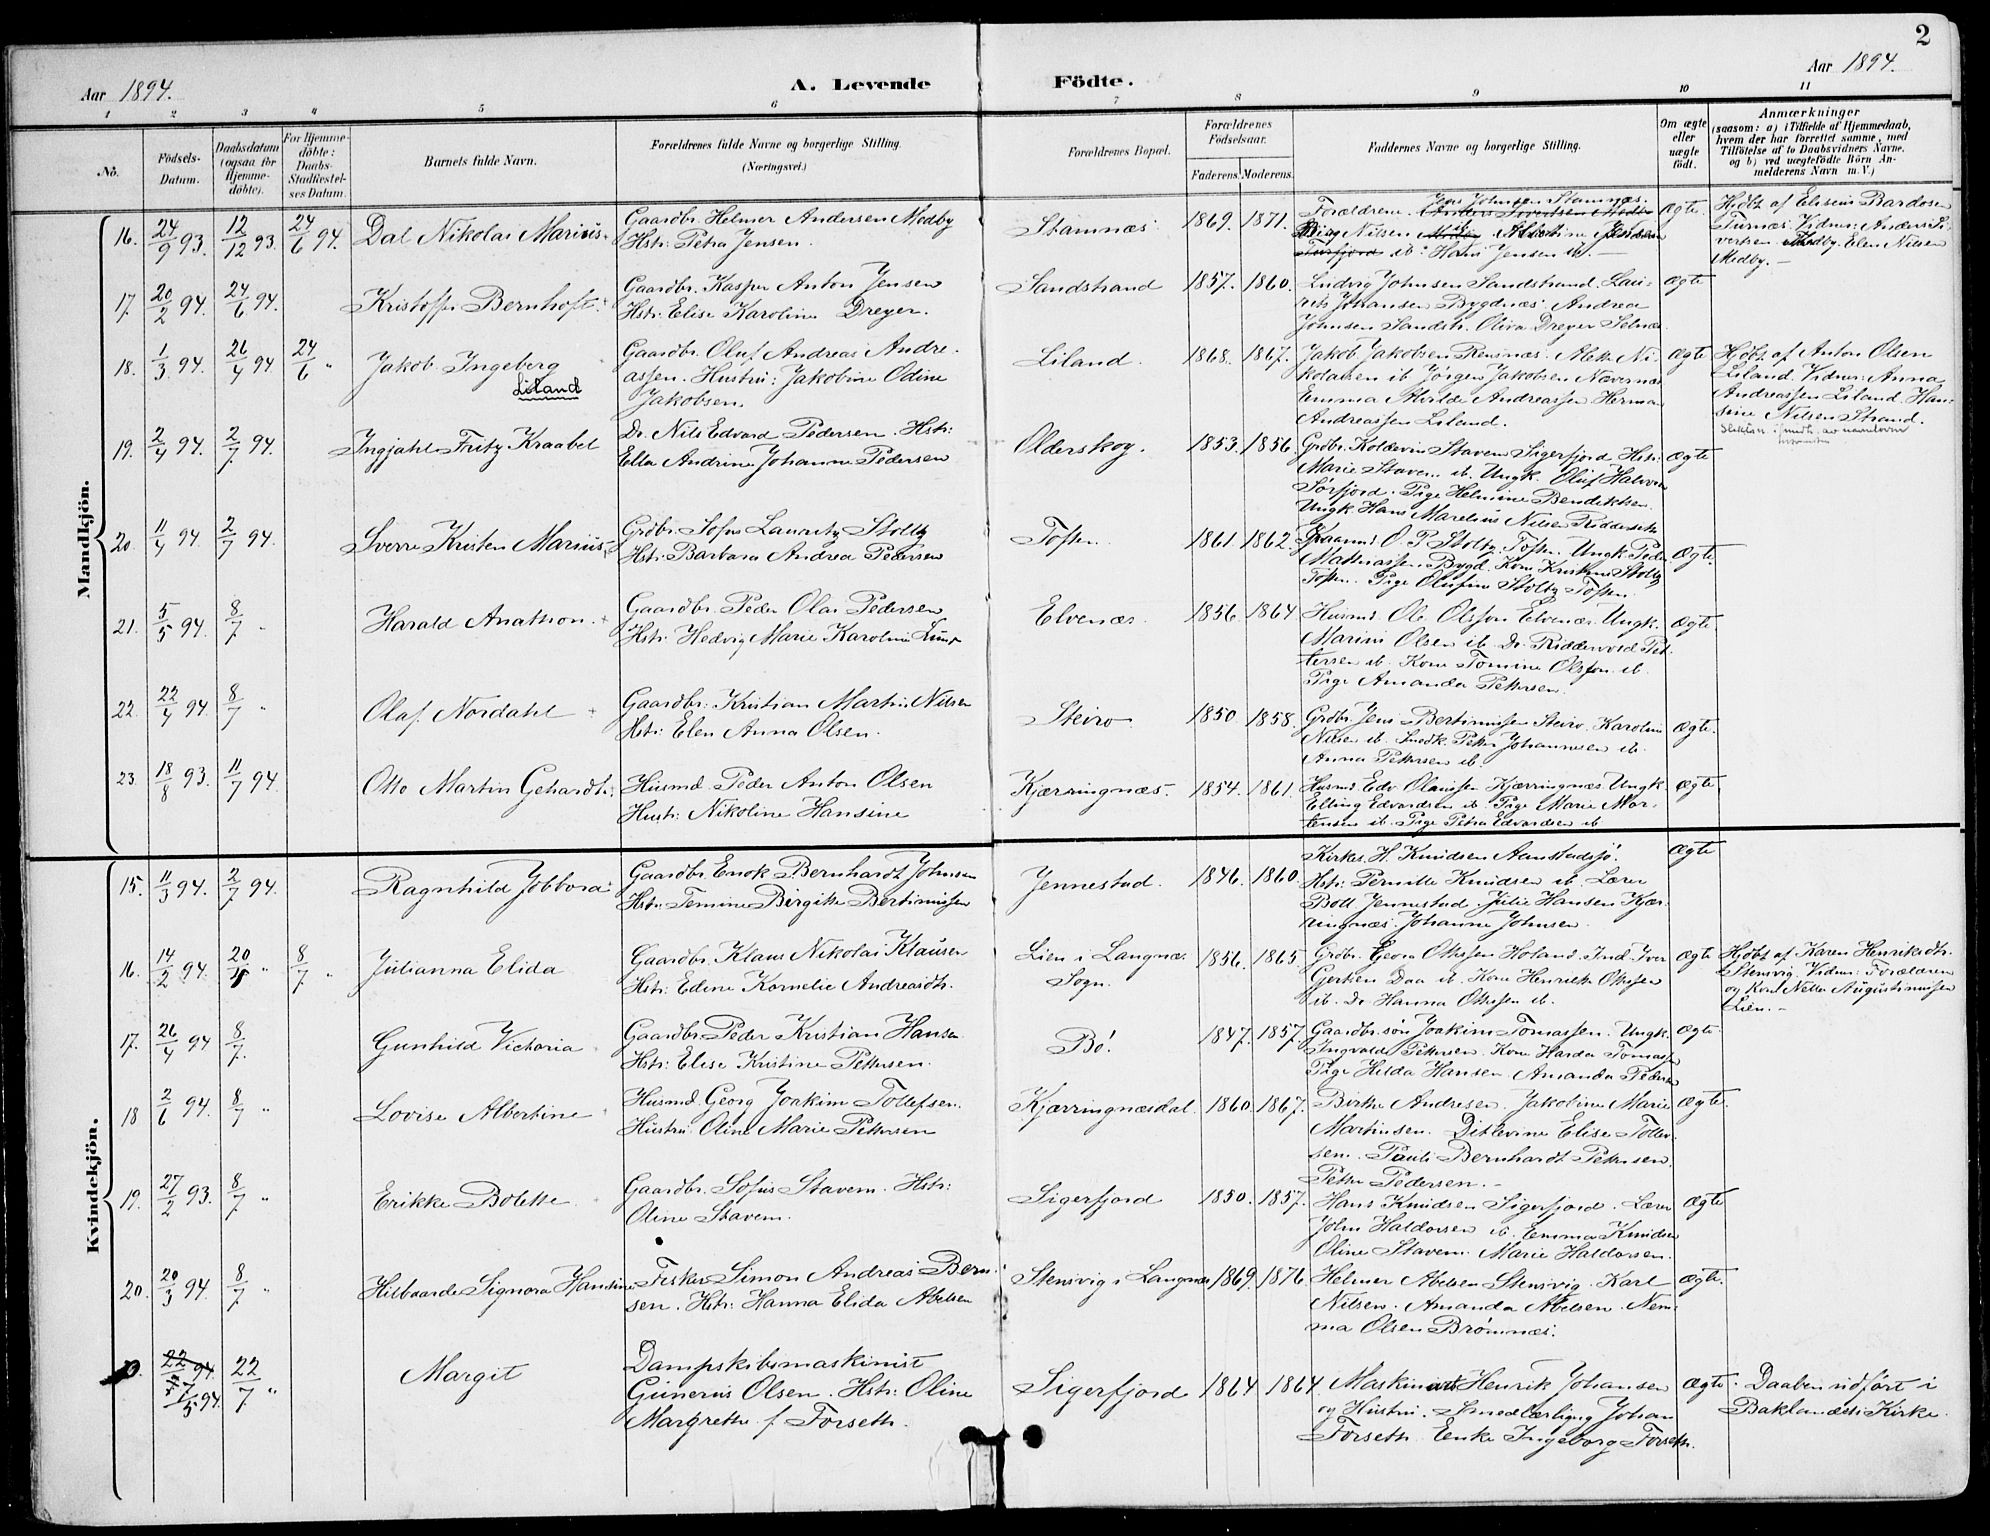 2
Aar 1894.
A. Levende Födte.
Aar 1894.
1 2 3 4 5 6 7 8 9 10 11
No.
Födsels-Datum.
Daabsdatum (ogsaa for Hjemmedöbte).
For Hjemmedöbte: Daabs-Stadfæstelses Datum.
Barnets fulde Navn.
Forældrenes fulde Navne og borgerlige Stilling.
(Næringsvei.)
Forældrenes Bopæl.
Forældrenes Födselsaar.
Faderens. Moderens.
Faddernes Navne og borgerlige Stilling.
Om ægte eller uægte födt.
Anmærkninger
(saasom: a) i Tilfælde af Hjemmedaab, hvem der har forrettet samme, med Tilföielse af to Daabsvidners Navne, og b) ved uægtefödte Börn Anmelderens Navn m. V.)
Mandkjön.
16. 24/9 93. 12/12 93. 24/6 94. Dal Nikolai Marius
Gaardbr. Helmer Andersen Medby
Hstr: Petra Jensen.
Stamnæs 1869. 1871.
Forældrene. Jens Johnsen Stamnæs.
Nilsen
ib. Hans Jensen ib.
Ægte.
Hjdbt af Eliseus Bardosen
Turnæs. Vidner: Anders Sivertsen Medby. Elen Nilsen
Medby.
17. 20/2 94. 24/6 94. Kristoffer Bernhoft
Gaardbr. Kasper Anton Jensen
Hstr: Elise Karoline Dreyer.
Sandstrand 1857. 1860.
Ludvig Johnsen Sandstrand. Laurits Johansen Bygdnæs. Andrea
Johnsen Sandstr. Oliva Dreyer Selnæs
Ægte
18. 1/3 94. 26/4 94 24/6 " Jakob Ingeberg
Liland
Gaardbr. Oluf Andreas Andreassen. Hustru: Jakobine Odine
Jakobsen.
Liland. 1868. 1867.
Jakob Jakobsen Rensnæs. Nikolaisen ib. Jörgen Jakobsen Nævernæs
Emma Andreassen Herman
Andreassen Liland.
Ægte
Hjdbt. af Anton Olsen
Liland. Vidner: Anna
Andreassen Liland. Hansine Nilsen Strand.
19. 2/4 94. 2/7 94. Ingjahl Fritz Kraabel
Dr. Nils Edvard Pedersen. Hstr:
Ella Andrine Johanne Pedersen
Olderskog. 1853. 1856.
Grdbr. Koldevin Stavem Sigerfjord Hstr:
Marie Stavem ib. Ungk. Oluf Halvor
Sörfjord. Pige Helmine Bendiktsen.
Ungk Hans Marelius Nilsen
Ægte
20. 11/4 94. 2/7 94. Sverre Kristen Marius
Grdbr. Sofus Lauritz Stoltz
Hstr: Barbara Andrea Pedersen
Toften. 1861. 1862.
O. P. Stoltz. Toften. Ungk. Peder
Mathiassen Bygd. Kone Stoltz
Toften. Pige Olufine Stoltz Toften.
Ægte.
21. 5/5 94. 8/7 " Harald Anathon.
Gaardbr. Peder Olai Pedersen
Hstr: Hedvig Marie Karoline Lund
Elvenæs. 1856. 1864
Husmd. Ol. Olsson Elvenæs. Ungk.
Marius Olsen ib. Dr. Riddervold Pettersen ib. Kone Tomine Olsson. ib.
Pige Amanda Pettersen.
Ægte.
22. 22/4 94. 8/7 " Olaf Nordahl
Gaardbr. Kristian Martin Nilsen
Hstr: Elen Anna Olsen.
Steiro. 1850. 1858.
Grdbr. Jens Bertinussen Steiro. Karoline
Nilsen ib. Snedk. Petter Johannesen ib.
Anna Pettersen ib.
Ægte.
23. 18/8 93. 11/7 94. Otto Martin Gehardt.
Husmd. Peder Anton Olsen
Hustr: Nikoline Hansine
Kjærringnæs. 1854. 1861.
Husmd. Edv. Olaussen Kjærringnæs. Ungk.
Elling Edvardsen ib. Pige Marie Mortensen ib. Pige Petra Edvardsen ib
Ægte.
Kvindekjön.
15. 11/3 94. 2/7 94. Ragnhild Jobbora
Gaardbr. Enok Bernhardt Johnsen
Hstr. Temine Birgitte Bertinussen
Jennestad. 1846. 1860.
Kirkes. H. Knudsen Aanstadsjö.
Hstr: Pernille Knudsen ib. Lærer
Boll Jennestad. Julie Hansen Kjærringnæs. Johanne Johnsen.
Ægte
16. 14/2 94. 20/5 " 8/7 " Julianna Elida
Gaardbr. Klaus Nikolai Klausen
Hstr: Edine Kornelie Andreasdtr.
Lien i Langnæs
Sogn. 1856. 1865.
Grdbr. Georg Ottesen Holand. Ind. Iver
Gerken Daa ib. Kone Henriette Ottesen
ib. Dr. Hanna Ottesen ib.
Ægte
Hjdbt af Karen Henriksdtr.
Stensvig. Vidner: Forældrene
og Kone Nella Augustinussen
Lien.
17. 26/4 94 8/7. Gunhild Victoria
Gaardbr. Peder Kristian Hansen.
Hstr: Elise Kristine Pettersen.
Bö. 1847. 1857.
Gaardbr.sön Joakim Tomassen. Ungk.
Ingvald Pettersen. Kone Harda Tomassen
Pige Hilda Hansen. Amanda Pedersen
Ægte.
18 2/6 94. 8/7 " Lovise Albertine
Husmd. Georg Joakim Tollefsen.
Hustru Oline Marie Pettersen
Kjærringnæsdal. 1860. 1867.
Birthe Andresen. Jakobine Marie
Martinsen. Ditlevine Elise Tollevsen. Pauli Bernhardt Pettersen.
Petter Pedersen.
Ægte.
19. 27/2 93. 8/7 " Erikke Bolette
Gaardbr. Sofus Stavem. Hstr:
Oline Stavem.
Sigerfjord 1850. 1857.
Hans Knudsen Sigerfjord. Lærer
John Haldorsen ib. Emma Knudsen
Oline Stavem. Marie Haldorsen.
Ægte
20. 20/3 94. 8/7 " Hilbaarde Signora Hansine
Fisker Simon Andreas Bernsen. Hstr: Hanna Elida Abelsen
Stensvig i Langnæs 1869. 1876.
Helmer Abelsen Stensvig. Karl
Nilsen. Amanda Abelsen. Nemma Olsen Brömnæs.
Ægte.
22 94. 1/5 94. 22/7 " Margit
Dampskibsmaskinist
Gunerius Olsen. Hstr: Oline
Margrethe f. Forseth.
Sigerfjord 1864 1864.
Maskinist Henrik Johansen
og Hustru. Smedlærling Johan
Forseth. Enke Ingeborg Forseth.
Ægte.
Daaben udført i
Baklandets Kirke.